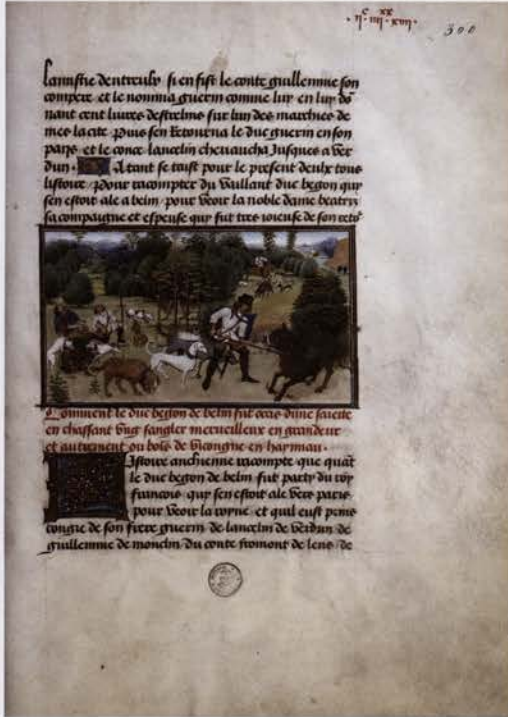 300
en fist le conte guillemme son
compere et le nomma guerin comme luy en luy dō
nant cent livres destrelins sur lun des marchies de
mes la cite Puis sen retourna le duc guerin en son
pays et le conte lancelin chevaucha Jusques a ver
dun. A tant se taist pour le present
listoire / Pour racompter du vaillant duc begon quy
sen estoit ale a belin / pour veoir la noble dame beatrix
sa compaigne et espeuse quy fut tres ioieuse de son reto
Comment le duc begon de belin fut occis dune saiette
en chassant ung sangler merveilleux en grandeur
et autrement ou bois de vicongne en haynnau.
Istoire anchienne racompte que quāt
le duc begon de belin fut party du roy
francois quy sen estoit ale vers paris
pour veoir la royne et quil eust prins
congie de son frere guerin de lancelin de verdun de
guillemme de monclin du conte fromont de lens de